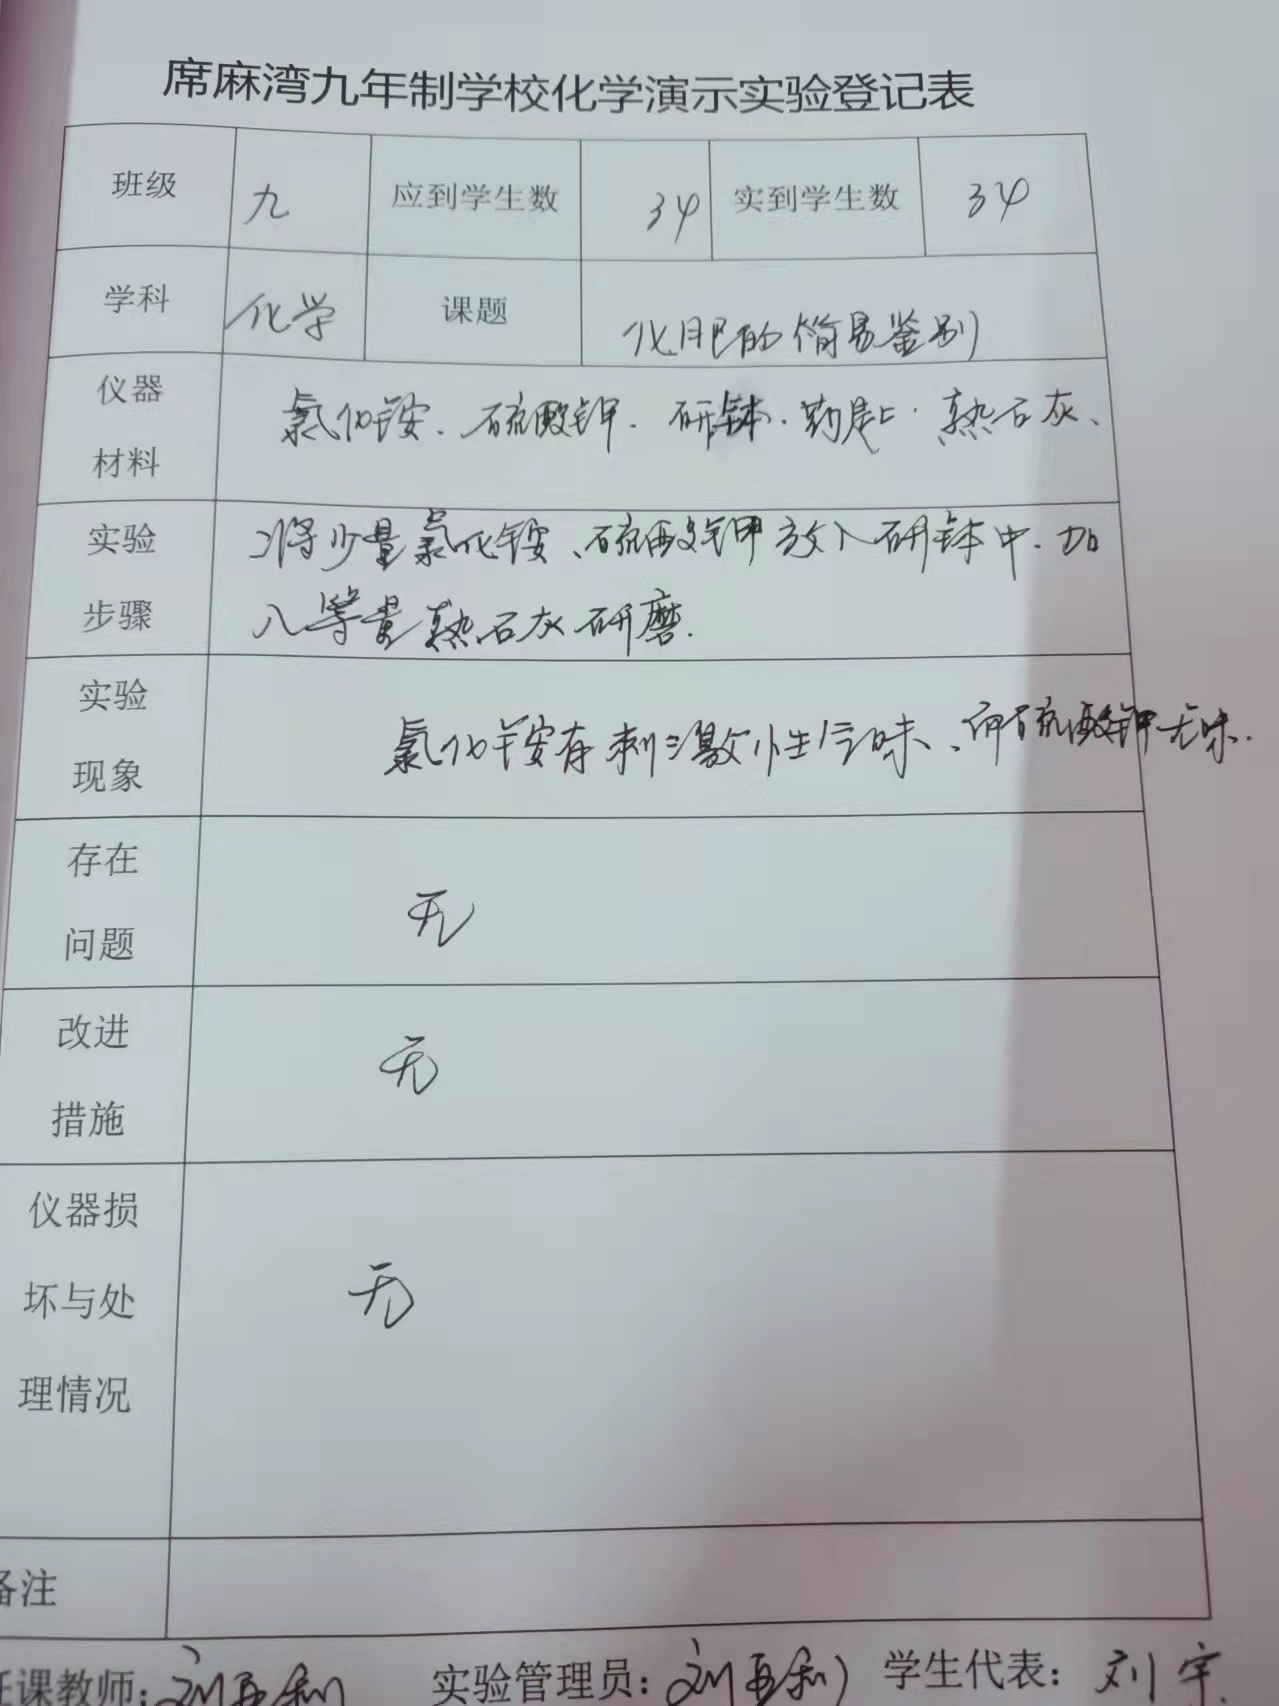 席麻湾九年制学校化学演示实验登记表
班级 九 应到学生数 34 实到学生数 34
学科 化学 课题 化肥的简易鉴别
仪器
材料
氯化铵、硫酸钾、研钵、药匙、熟石灰、
实验
步骤
将少量氯化铵、硫酸钾放入研钵中、加
入等量熟石灰研磨.
实验
现象
氯化铵有刺激性气味、而硫酸钾无味.
存在
问题
无
改进
措施
无
仪器损
坏与处
理情况
无
备注
任课教师: 实验管理员: 学生代表: 刘宇